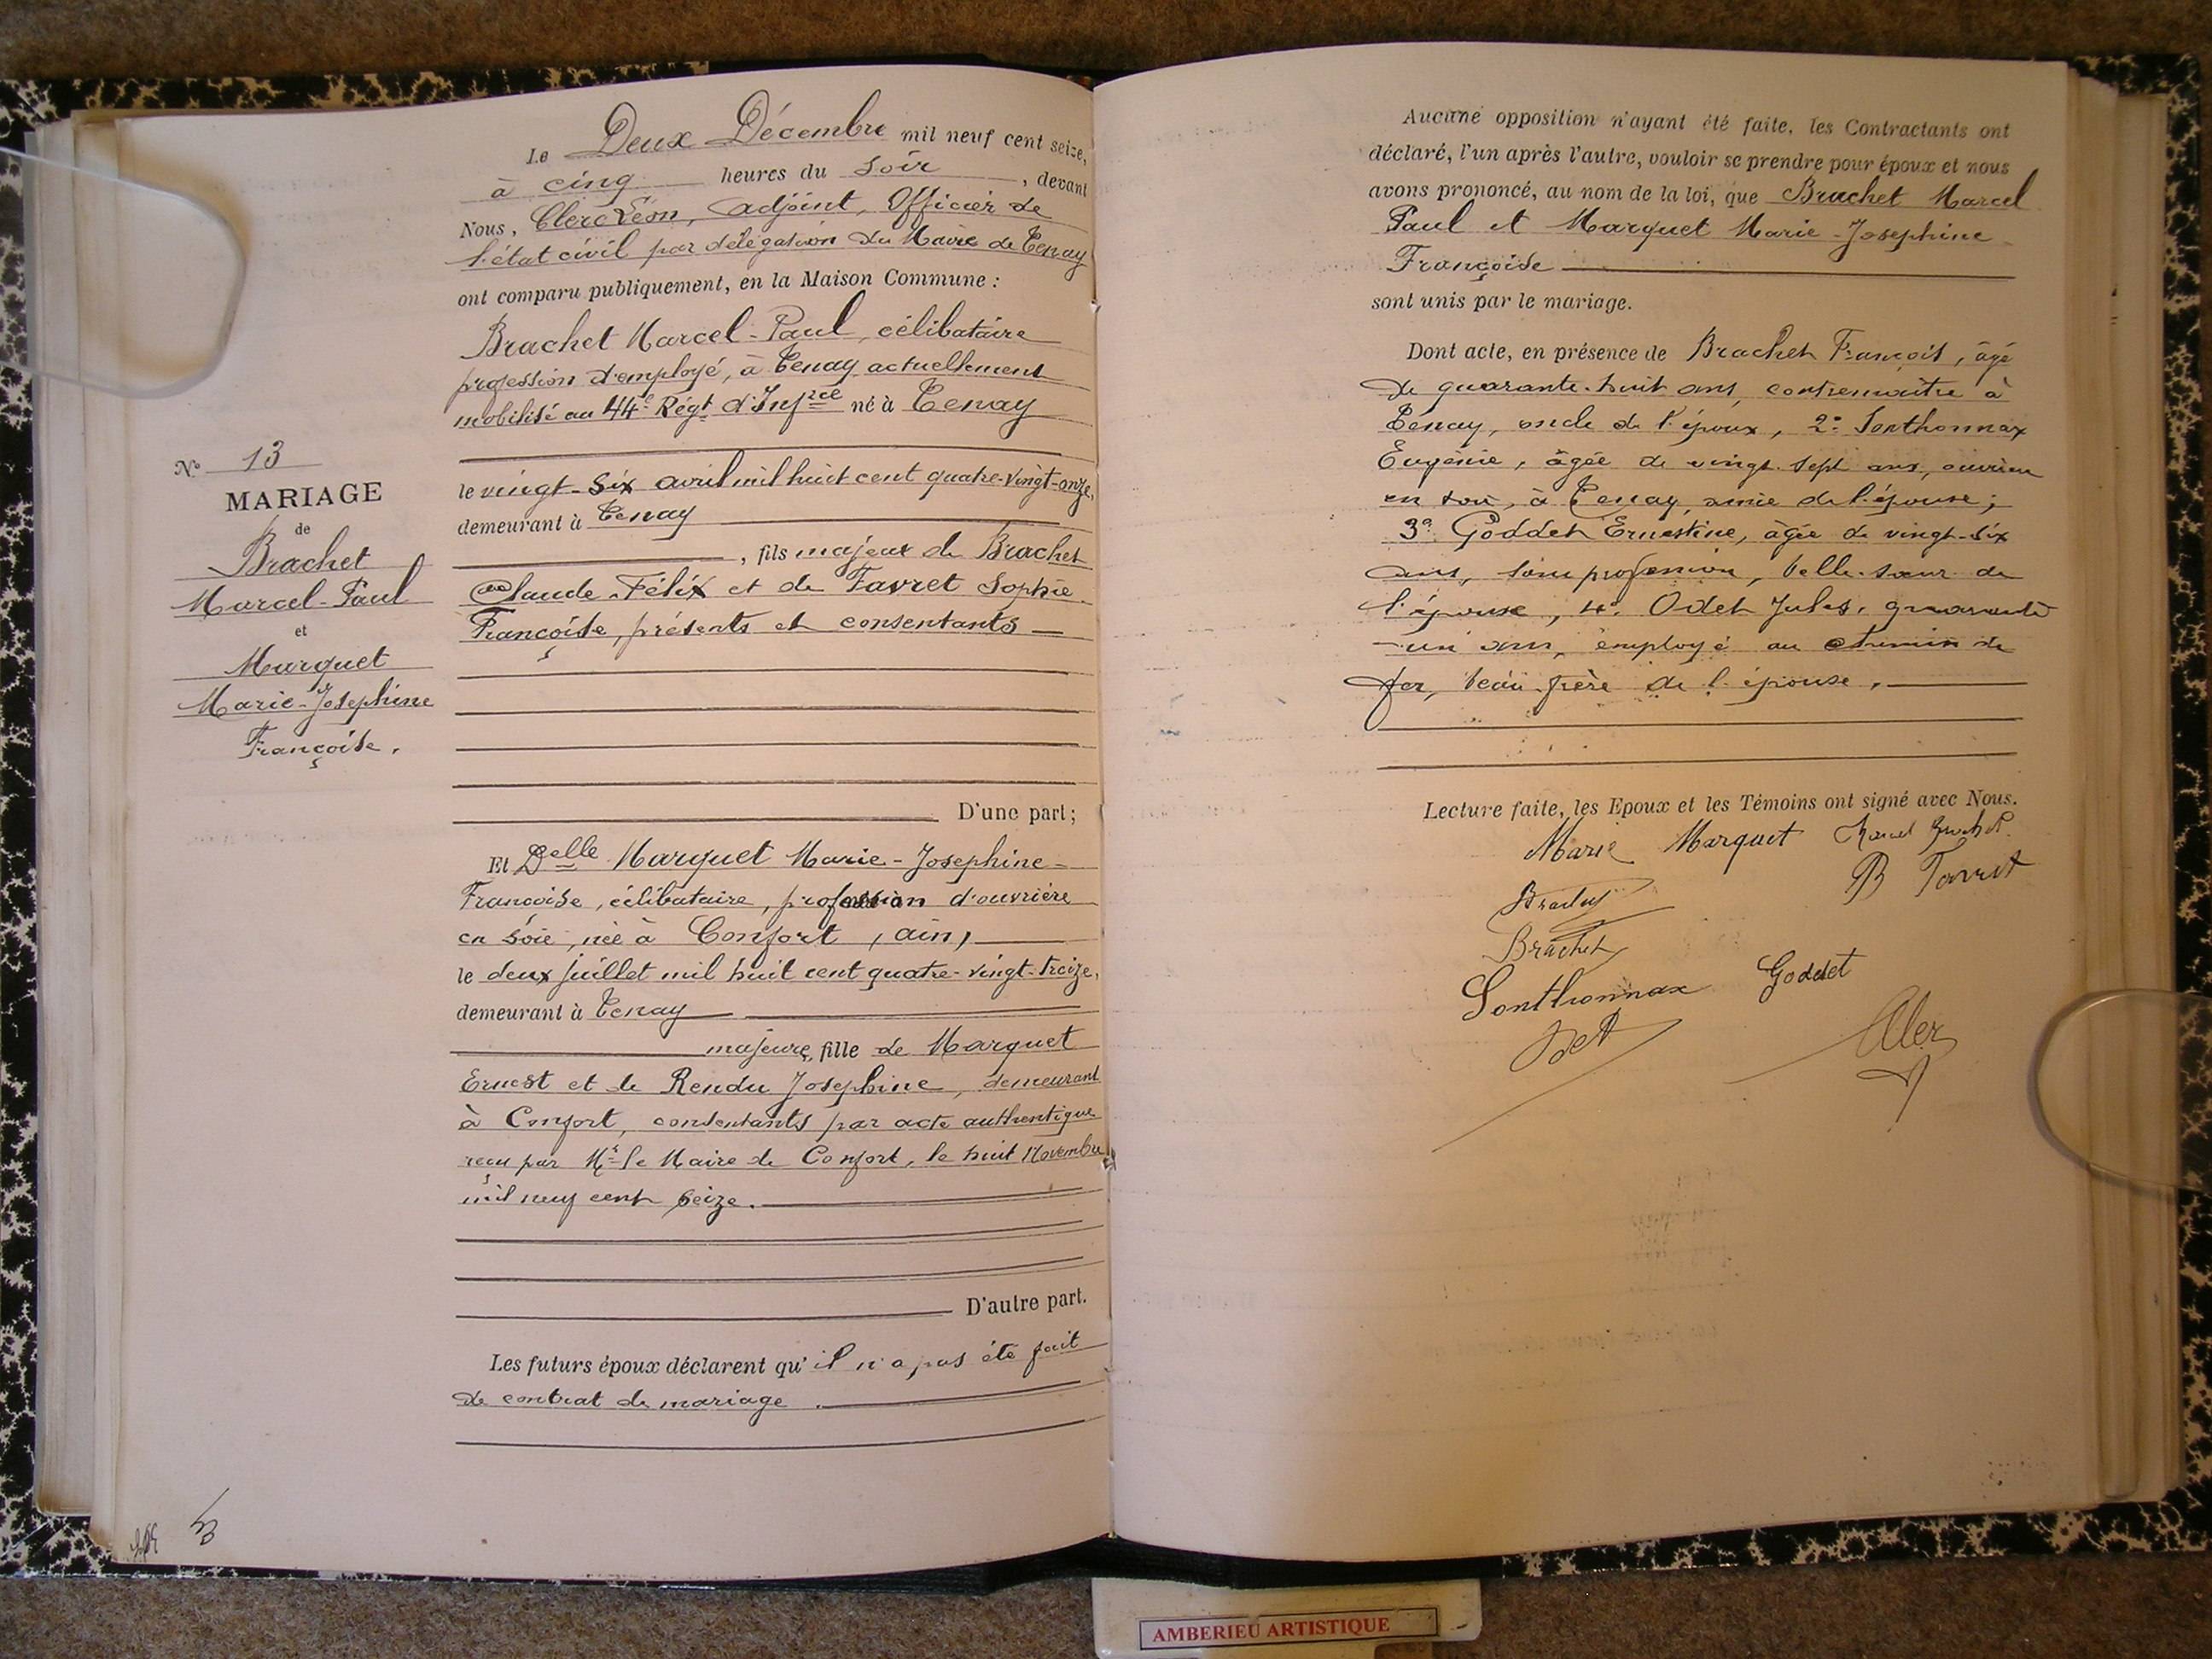 Le Deux Décembre mil neuf cent seize,
à cinq heures du soir, devant
Nous, Clerc Léon, adjoint, Officier de
l'état civil par délégation du Maire de Tenay
ont comparu publiquement, en la Maison Commune :
Brachet Marcel-Paul, célibataire
profession d'employé, à Tenay actuellement
mobilisé au 44e Régt d'Infrie né à Tenay
le vingt-six avril mil huit cent quatre-vingt-onze,
demeurant à Tenay
, fils majeur de Brachet
Claude-Félix et de Favret Sophie
Françoise, présents et consentants
D'une part;
Et Delle Marquet Marie-Josephine-
Françoise, célibataire, profession d'ouvrière
en soie, née à Confort (Ain)
le deux juillet mil huit cent quatre-vingt-treize,
demeurant à Tenay
majeure, fille de Marquet
Ernest et de Rendu Josephine, demeurant
à Confort, consentants par acte authentique
reçu par Mr le Maire de Confort, le huit Novembre
mil neuf cent seize.
D'autre part.
Les futurs époux déclarent qu'il n'a pas été fait
de contrat de mariage.
N° 13
MARIAGE
de
Brachet
Marcel-Paul
et
Marquet
Marie-Josephine
Françoise.
Aucune opposition n'ayant été faite, les Contractants ont
déclaré, l'un après l'autre, vouloir se prendre pour époux et nous
avons prononcé, au nom de la loi, que Brachet Marcel
Paul et Marquet Marie-Josephine
Françoise
sont unis par le mariage.
Dont acte, en présence de Brachet François, âgé
de quarante-huit ans, contremaître à
Tenay, oncle de l'époux, 2° Sonthonnax
Eugénie, âgée de vingt-sept ans, ouvrière
en soie, à Tenay, amie de l'épouse;
3° Goddet Ernestine, âgée de vingt-six
ans, sans profession, belle-sœur de
l'épouse, 4° Odet Jules, quarante
-un ans, employé au chemin de
fer, beau-frère de l'épouse.
Lecture faite, les Epoux et les Témoins ont signé avec Nous.
Marie Marquet Marcel Brachet
B Favret
Brachet
Brachet
Sonthonnax Goddet
Odet Clerc
AMBERIEU ARTISTIQUE